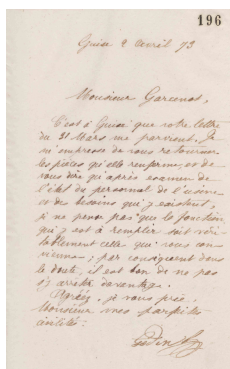 196
Guise 2 avril 73
Monsieur Garcenot,
C'est à Guise que votre lettre
du 31 Mars me parvient. Je
m'empresse de vous retourner
les pièces qu'elle renferme, et de
vous dire qu'après examen de
l'état du personnel de l'usine
et des besoins qui y existent,
je ne pense pas que la fonction
qui y est à remplir soit véri-
tablement celle qui vous con-
vienne ; par conséquent dans
le doute, il est bon de ne pas
s'y arrêter davantage.
Agréez, je vous prie,
Monsieur mes parfaites
civilités.
Godin